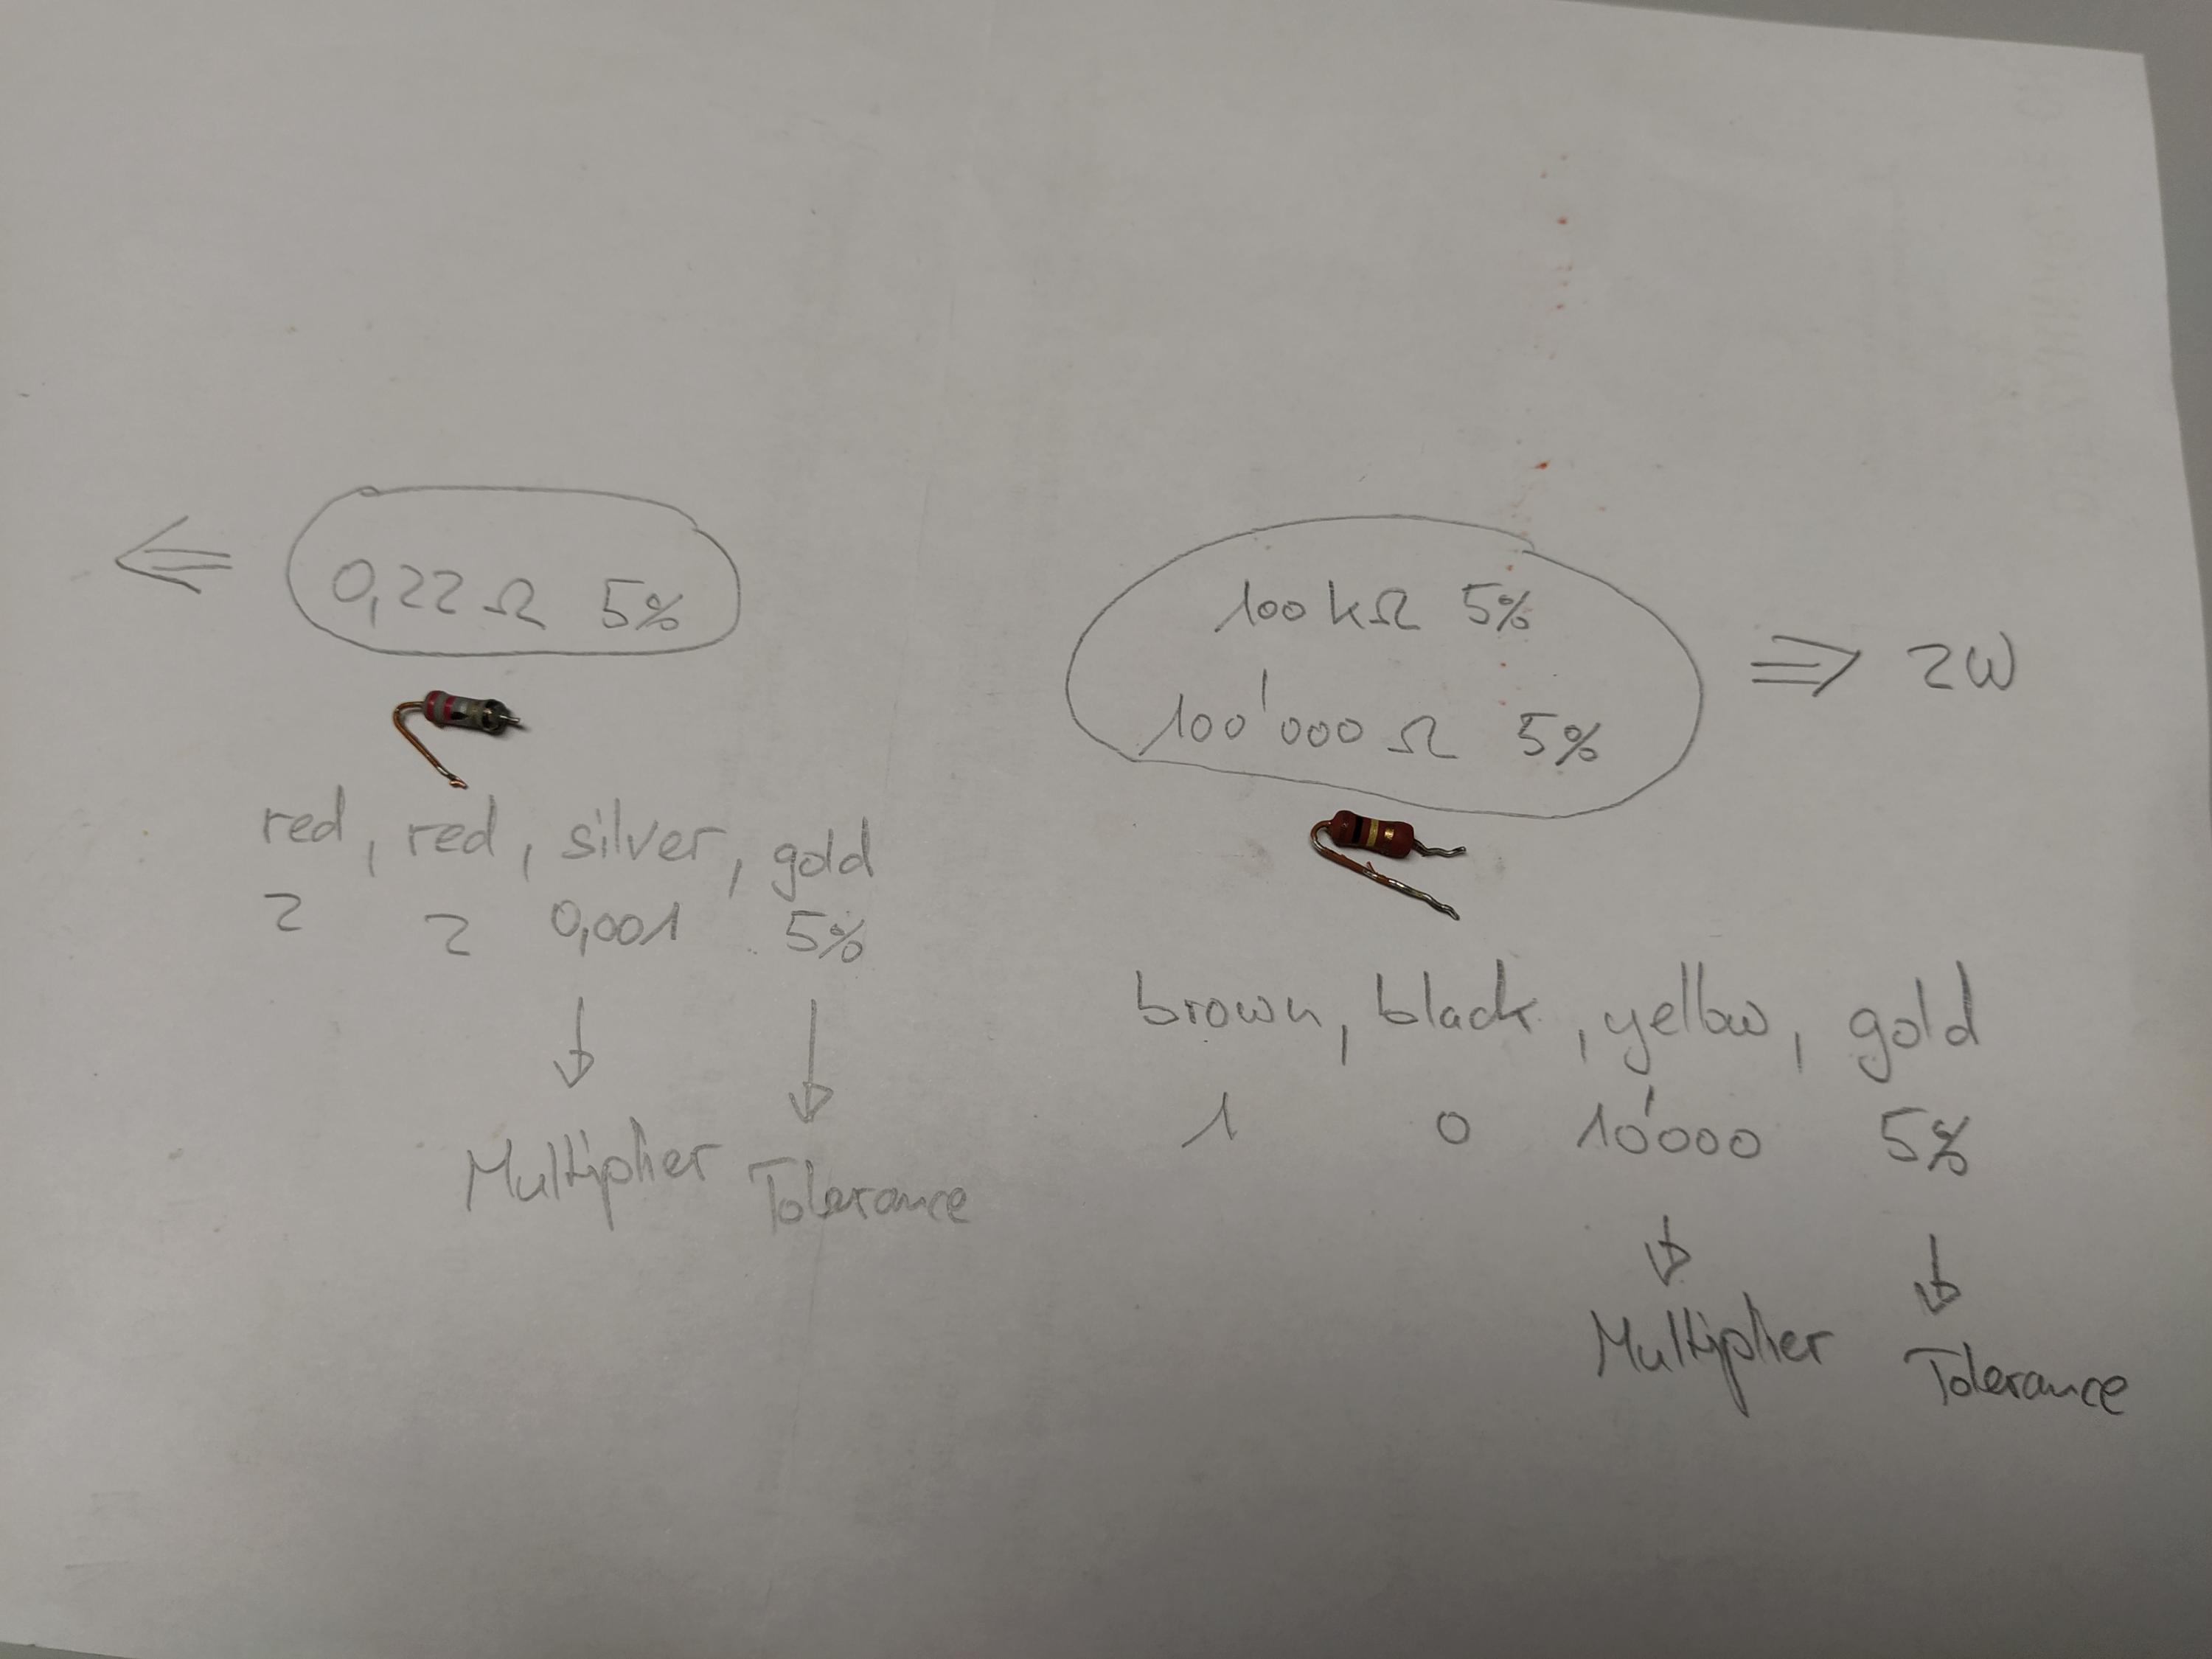 0,22 Ω 5%
red, red, silver, gold
2 2 0,001 5%
Multiplier Tolerance
100 kΩ 5%
100'000 Ω 5%
2W
brown, black, yellow, gold
1 0 10'000 5%
Multiplier Tolerance